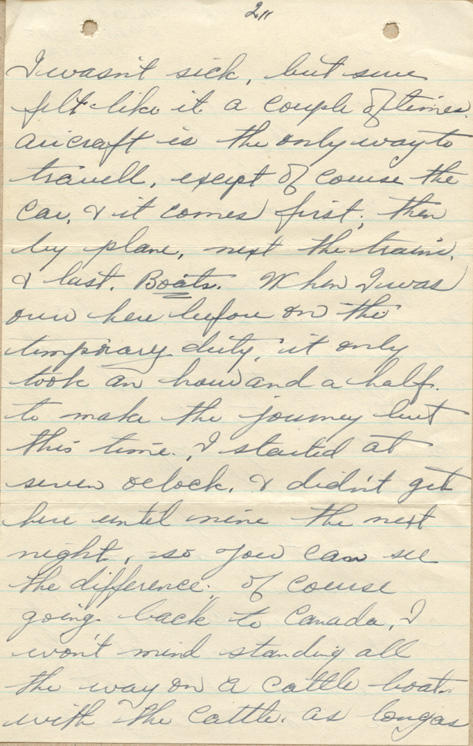 2"
I wasn't sick, but sure
felt like it a couple of times.
aircraft is the only way to
travell, except of course the
car, & it comes first; then
by plane, next the train,
& last. Boats. When I was
over here before on the
temporary duty, it only
took an hour and a half.
to make the journey but
this time. I started at
seven oclock, & didn't get
here until nine the next
night, so you can see
the difference; of course
going back to Canada, I
won't mind standing all
the way on a cattle boat.
with the cattle. as long as